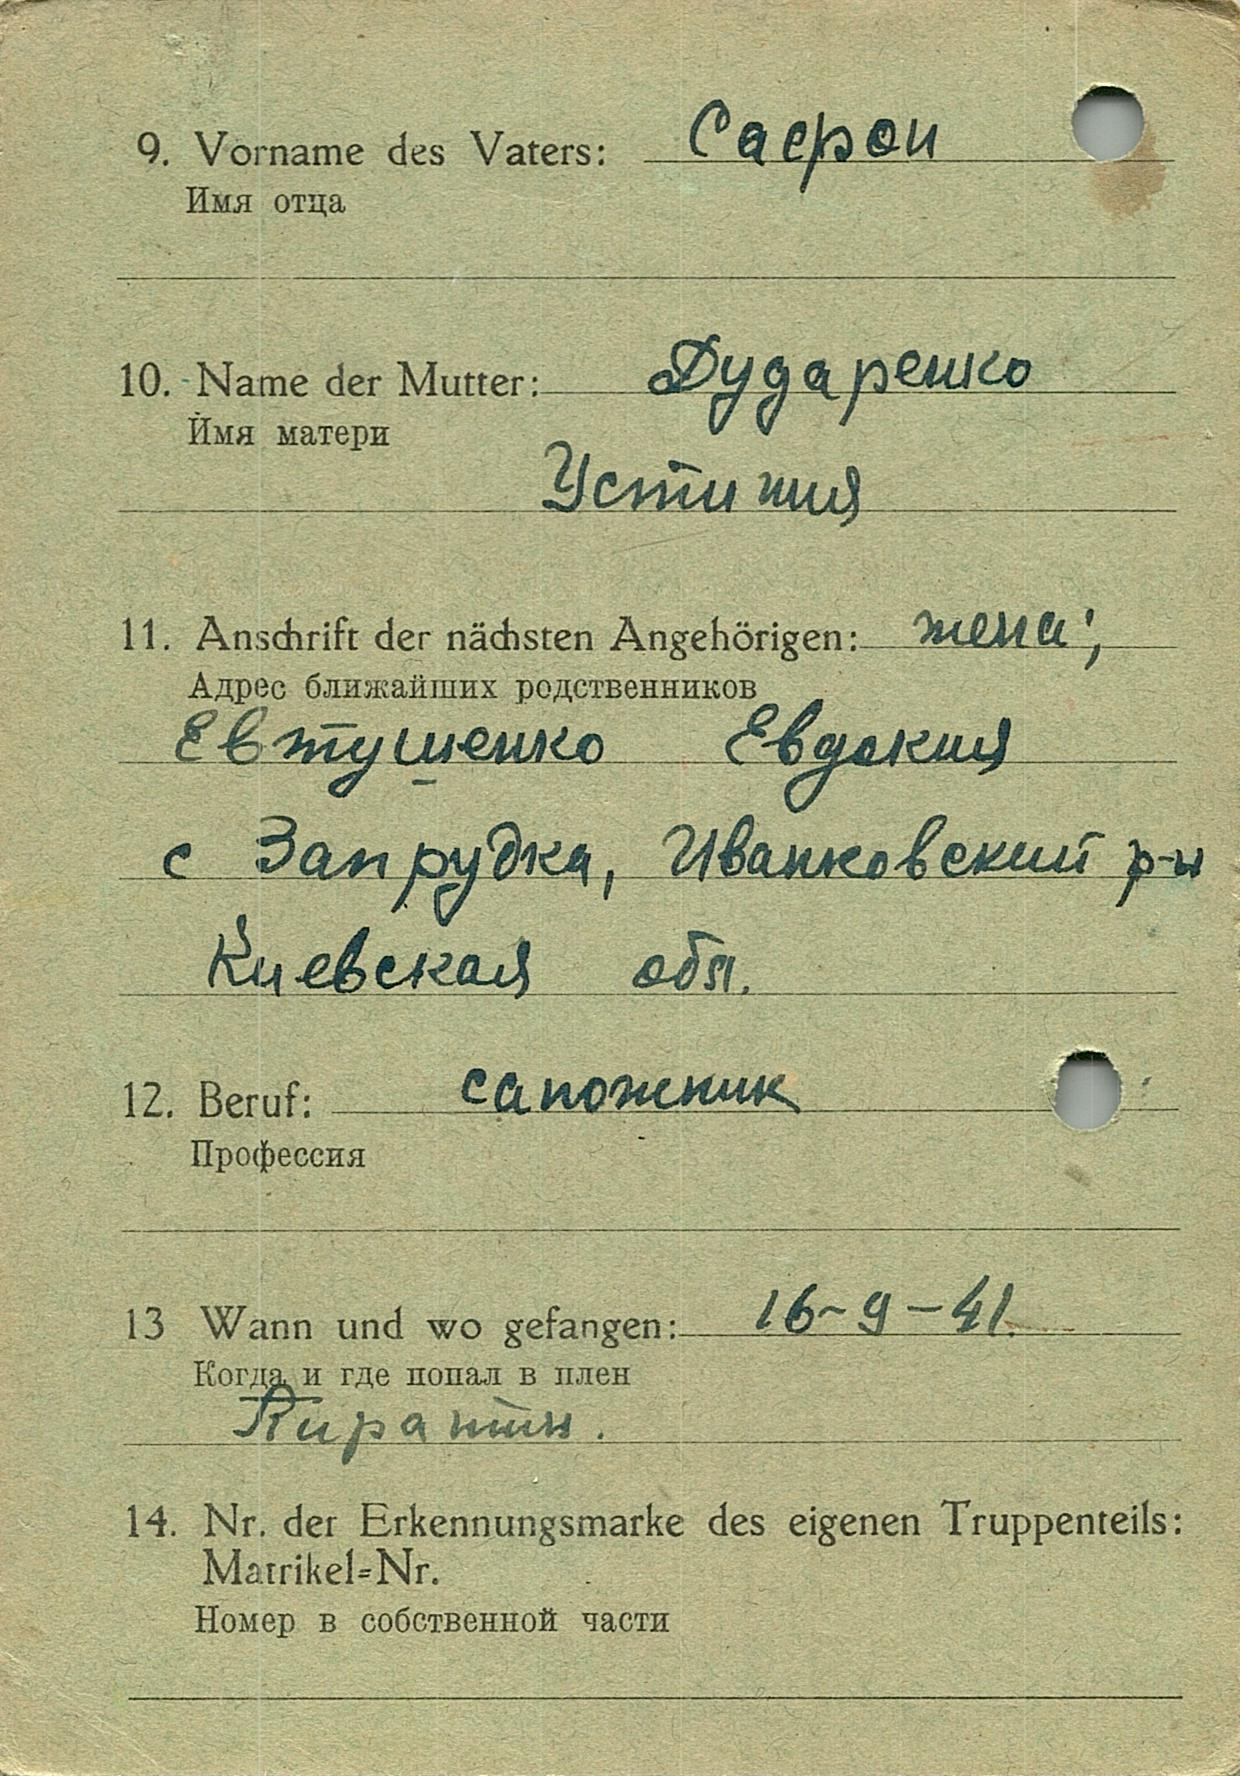 9. Vorname des Vaters: Сафрон
Имя отца
10. Name der Mutter: Дударенко
Имя матери
Устиния
11. Anschrift der nächsten Angehörigen: жена;
Адрес ближайших родственников
Евтушенко Евдокия
с Запрудка, Иванковский р-н
Киевская обл.
12. Beruf: сапожник
Профессия
13 Wann und wo gefangen: 16-9-41.
Когда и где попал в плен
Пирятин.
14. Nr. der Erkennungsmarke des eigenen Truppenteils:
Matrikel=Nr.
Номер в собственной части